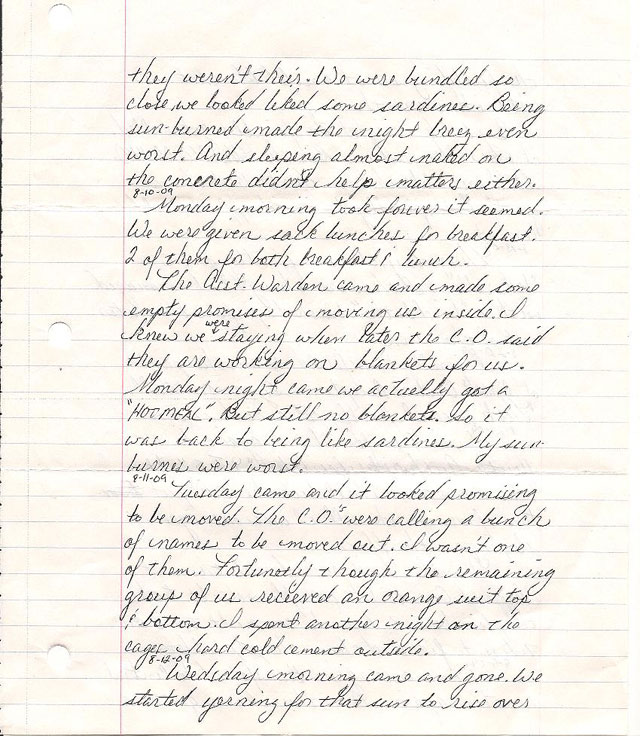 they weren't their. We were bundled so
close, we looked liked some sardines. Being
sun-burned made the night breez even
worst. And sleeping almost naked on
the concrete didn't help matters either.
8-10-09
Monday morning took forever it seemed.
We were given sack lunches for breakfast.
2 of them for both breakfast & lunch.
The Asst. Warden came and made some
empty promises of moving us inside. I
knew we were staying when later the C.O. said
they are working on blankets for us.
Monday night came we actually got a
"HOT MEAL". But still no blankets. So it
was back to being like sardines. My sun-
burnes were worst.
8-11-09
Tuesday came and it looked promising
to be moved. The C.O.'s were calling a bunch
of names to be moved out. I wasn't one
of them. Fortunotly though the remaining
group of us recieved an orange suit top
& bottom. I spent another night on the
cages hard cold cement outside.
8-12-09
Wedsday morning came and gone. We
started yerning for that sun to rise over